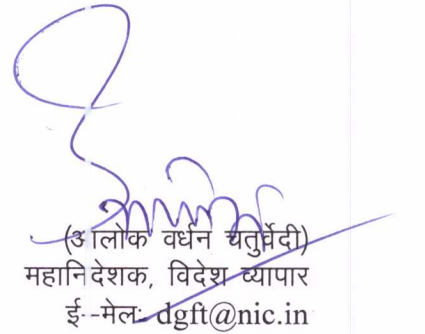 (आलोक वर्धन चतुर्वेदी)
महानिदेशक, विदेश व्यापार
ई--मेल:- dgft@nic.in